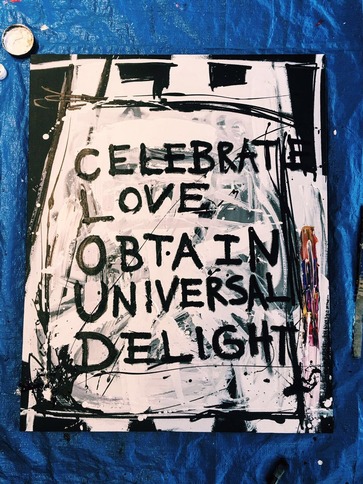 CELEBRATE
LOVE
OBTAIN
UNIVERSAL
DELIGHT